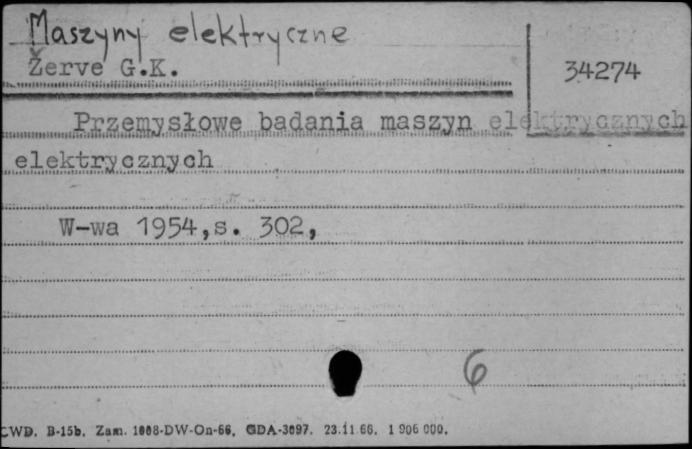 Maszyny elektryczne
Żerve G.K.
34274
Przemysłowe badania maszyn elektrycznych
elektrycznych
W-wa 1954,s. 302,
6
CWD. B-15b. Zam. 1008-DW-On-66. GDA-3097. 23.11.66. 1 906 000.